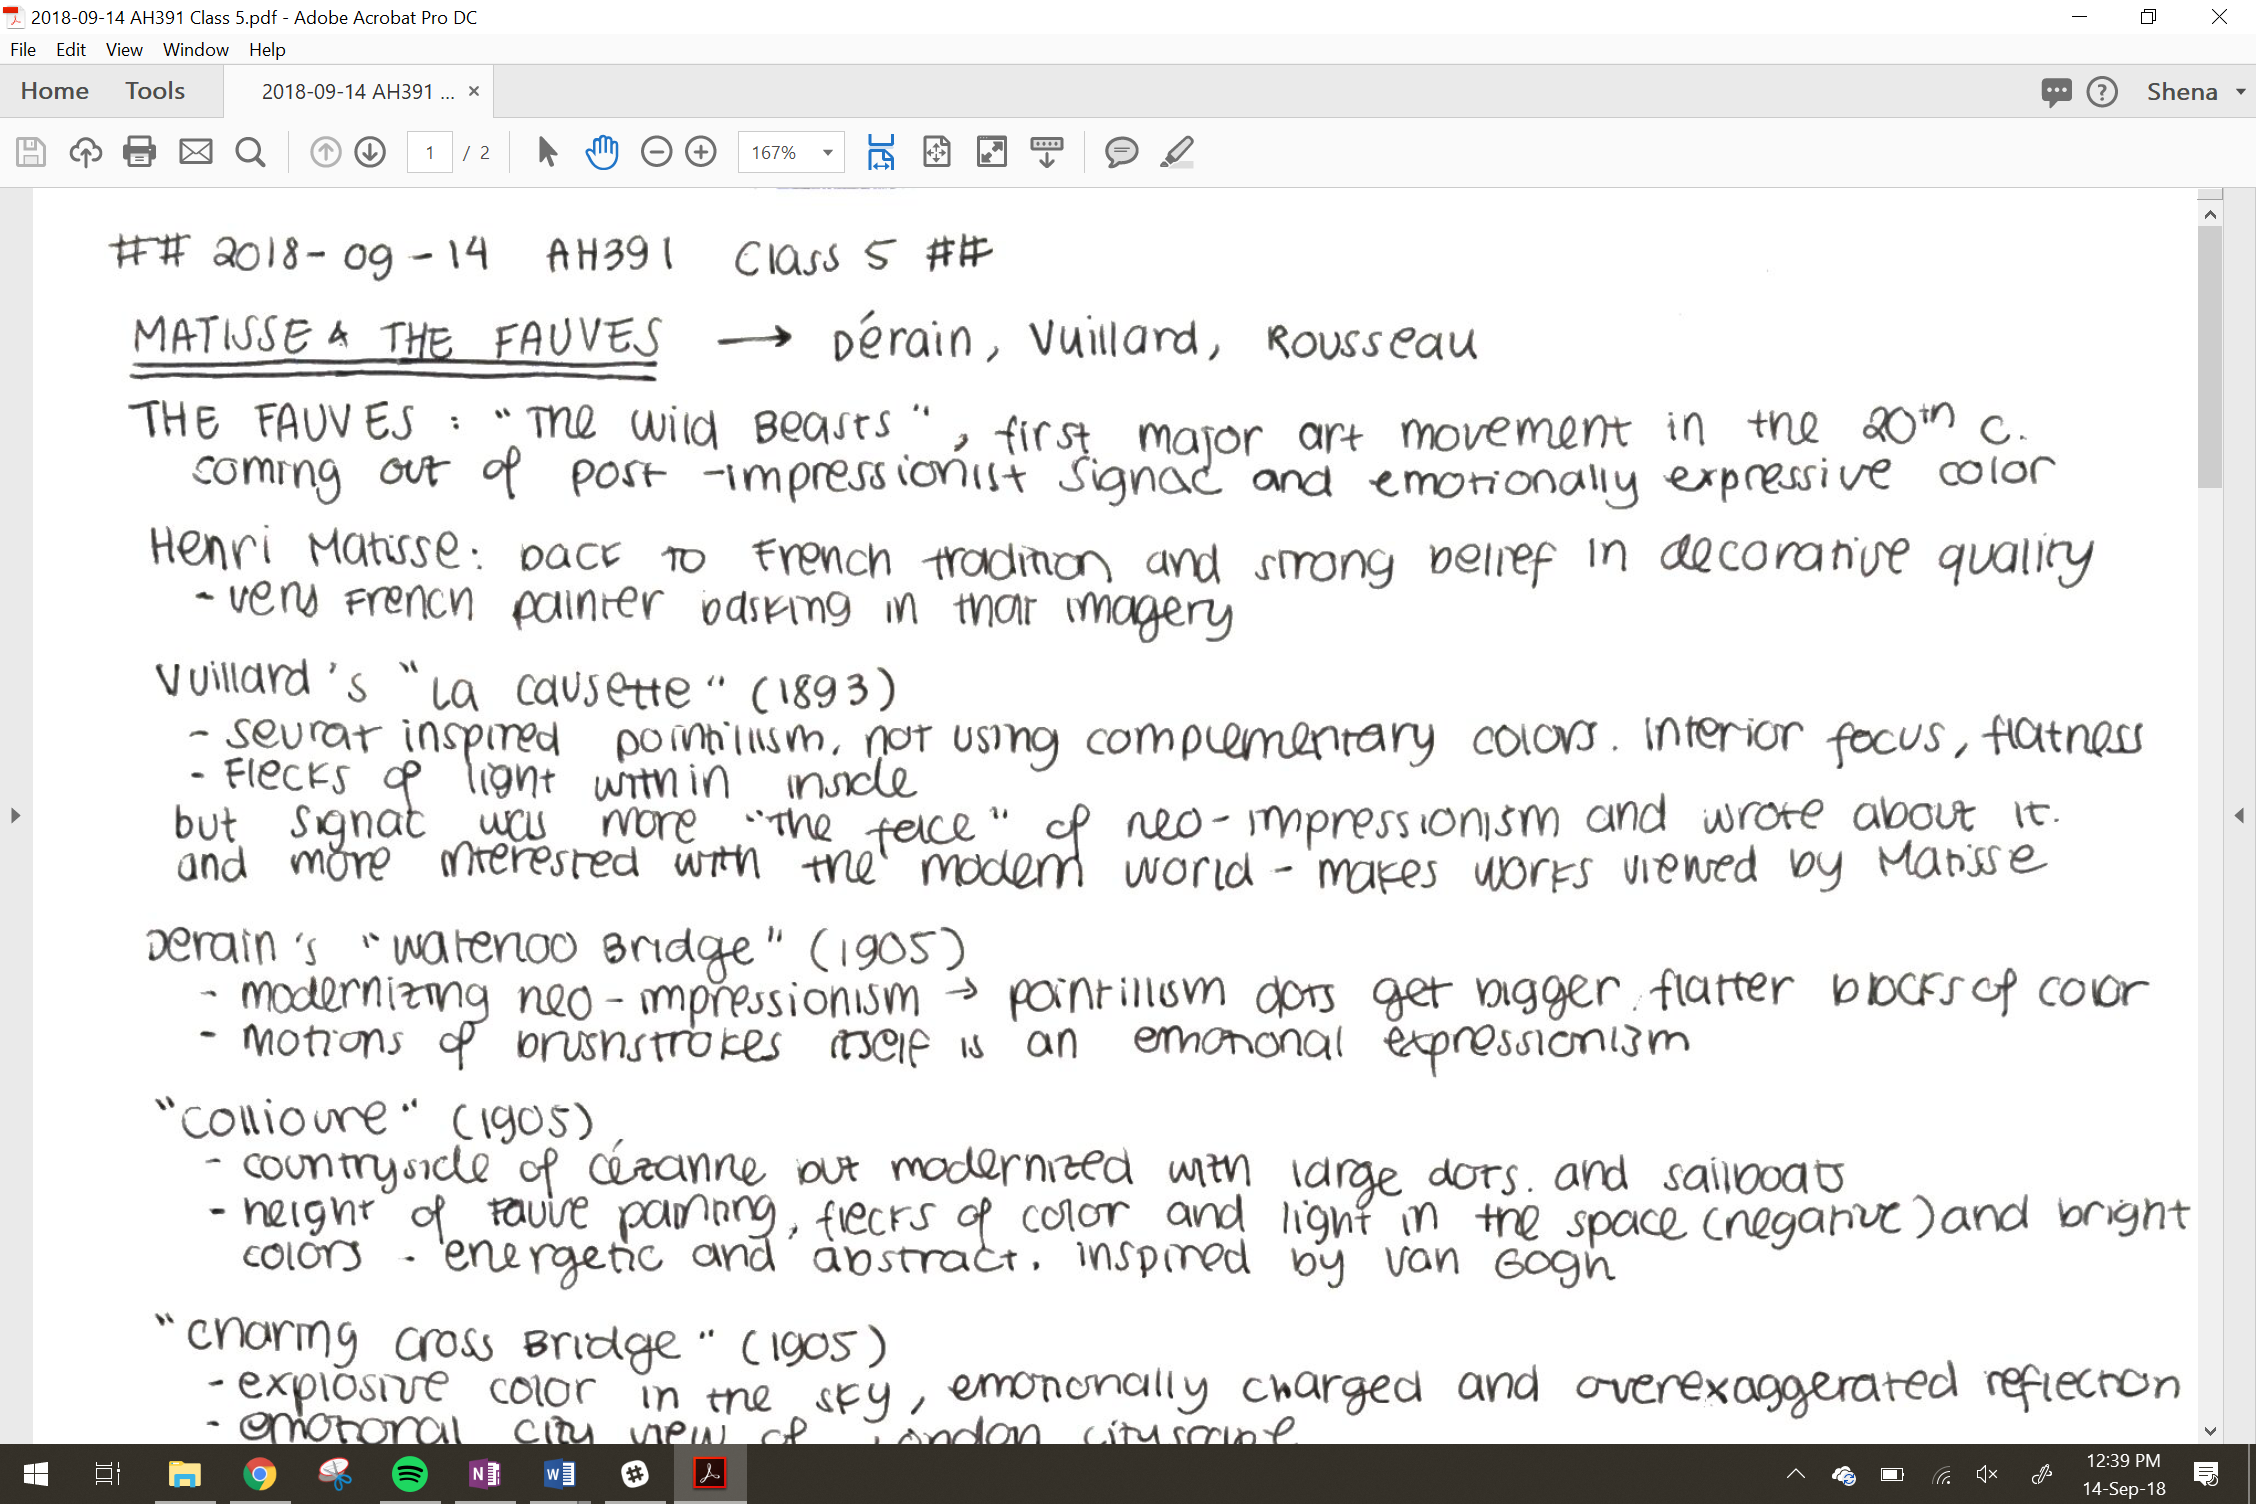 2018-09-14 AH391 Class 5.pdf - Adobe Acrobat Pro DC
File Edit View Window Help
Home Tools 2018-09-14 AH391 ... × Shena
1 / 2 167%
## 2018-09-14 AH391 Class 5 ##
MATISSE & THE FAUVES → Dérain, Vuillard, Rousseau
THE FAUVES: "The Wild Beasts", first major art movement in the 20th c.
coming out of post-impressionist Signac and emotionally expressive color
Henri Matisse: back to French tradition and strong belief in decorative quality
- very French painter basking in that imagery
Vuillard's "La Causette" (1893)
- Seurat inspired pointillism, not using complementary colors. Interior focus, flatness
- Flecks of light within inside
but Signac was more "the face" of neo-impressionism and wrote about it.
and more interested with the modern world - makes works viewed by Matisse
Derain's "Waterloo Bridge" (1905)
- modernizing neo-impressionism → pointillism dots get bigger, flatter blocks of color
- Motions of brushstrokes itself is an emotional expressionism
"Collioure" (1905)
- countryside of Cézanne but modernized with large dots. and sailboats
- height of Fauve painting, flecks of color and light in the space (negative) and bright
colors - energetic and abstract. inspired by Van Gogh
"Charing Cross Bridge" (1905)
- explosive color in the sky, emotionally charged and overexaggerated reflection
- emotional city view of London cityscape
12:39 PM
14-Sep-18